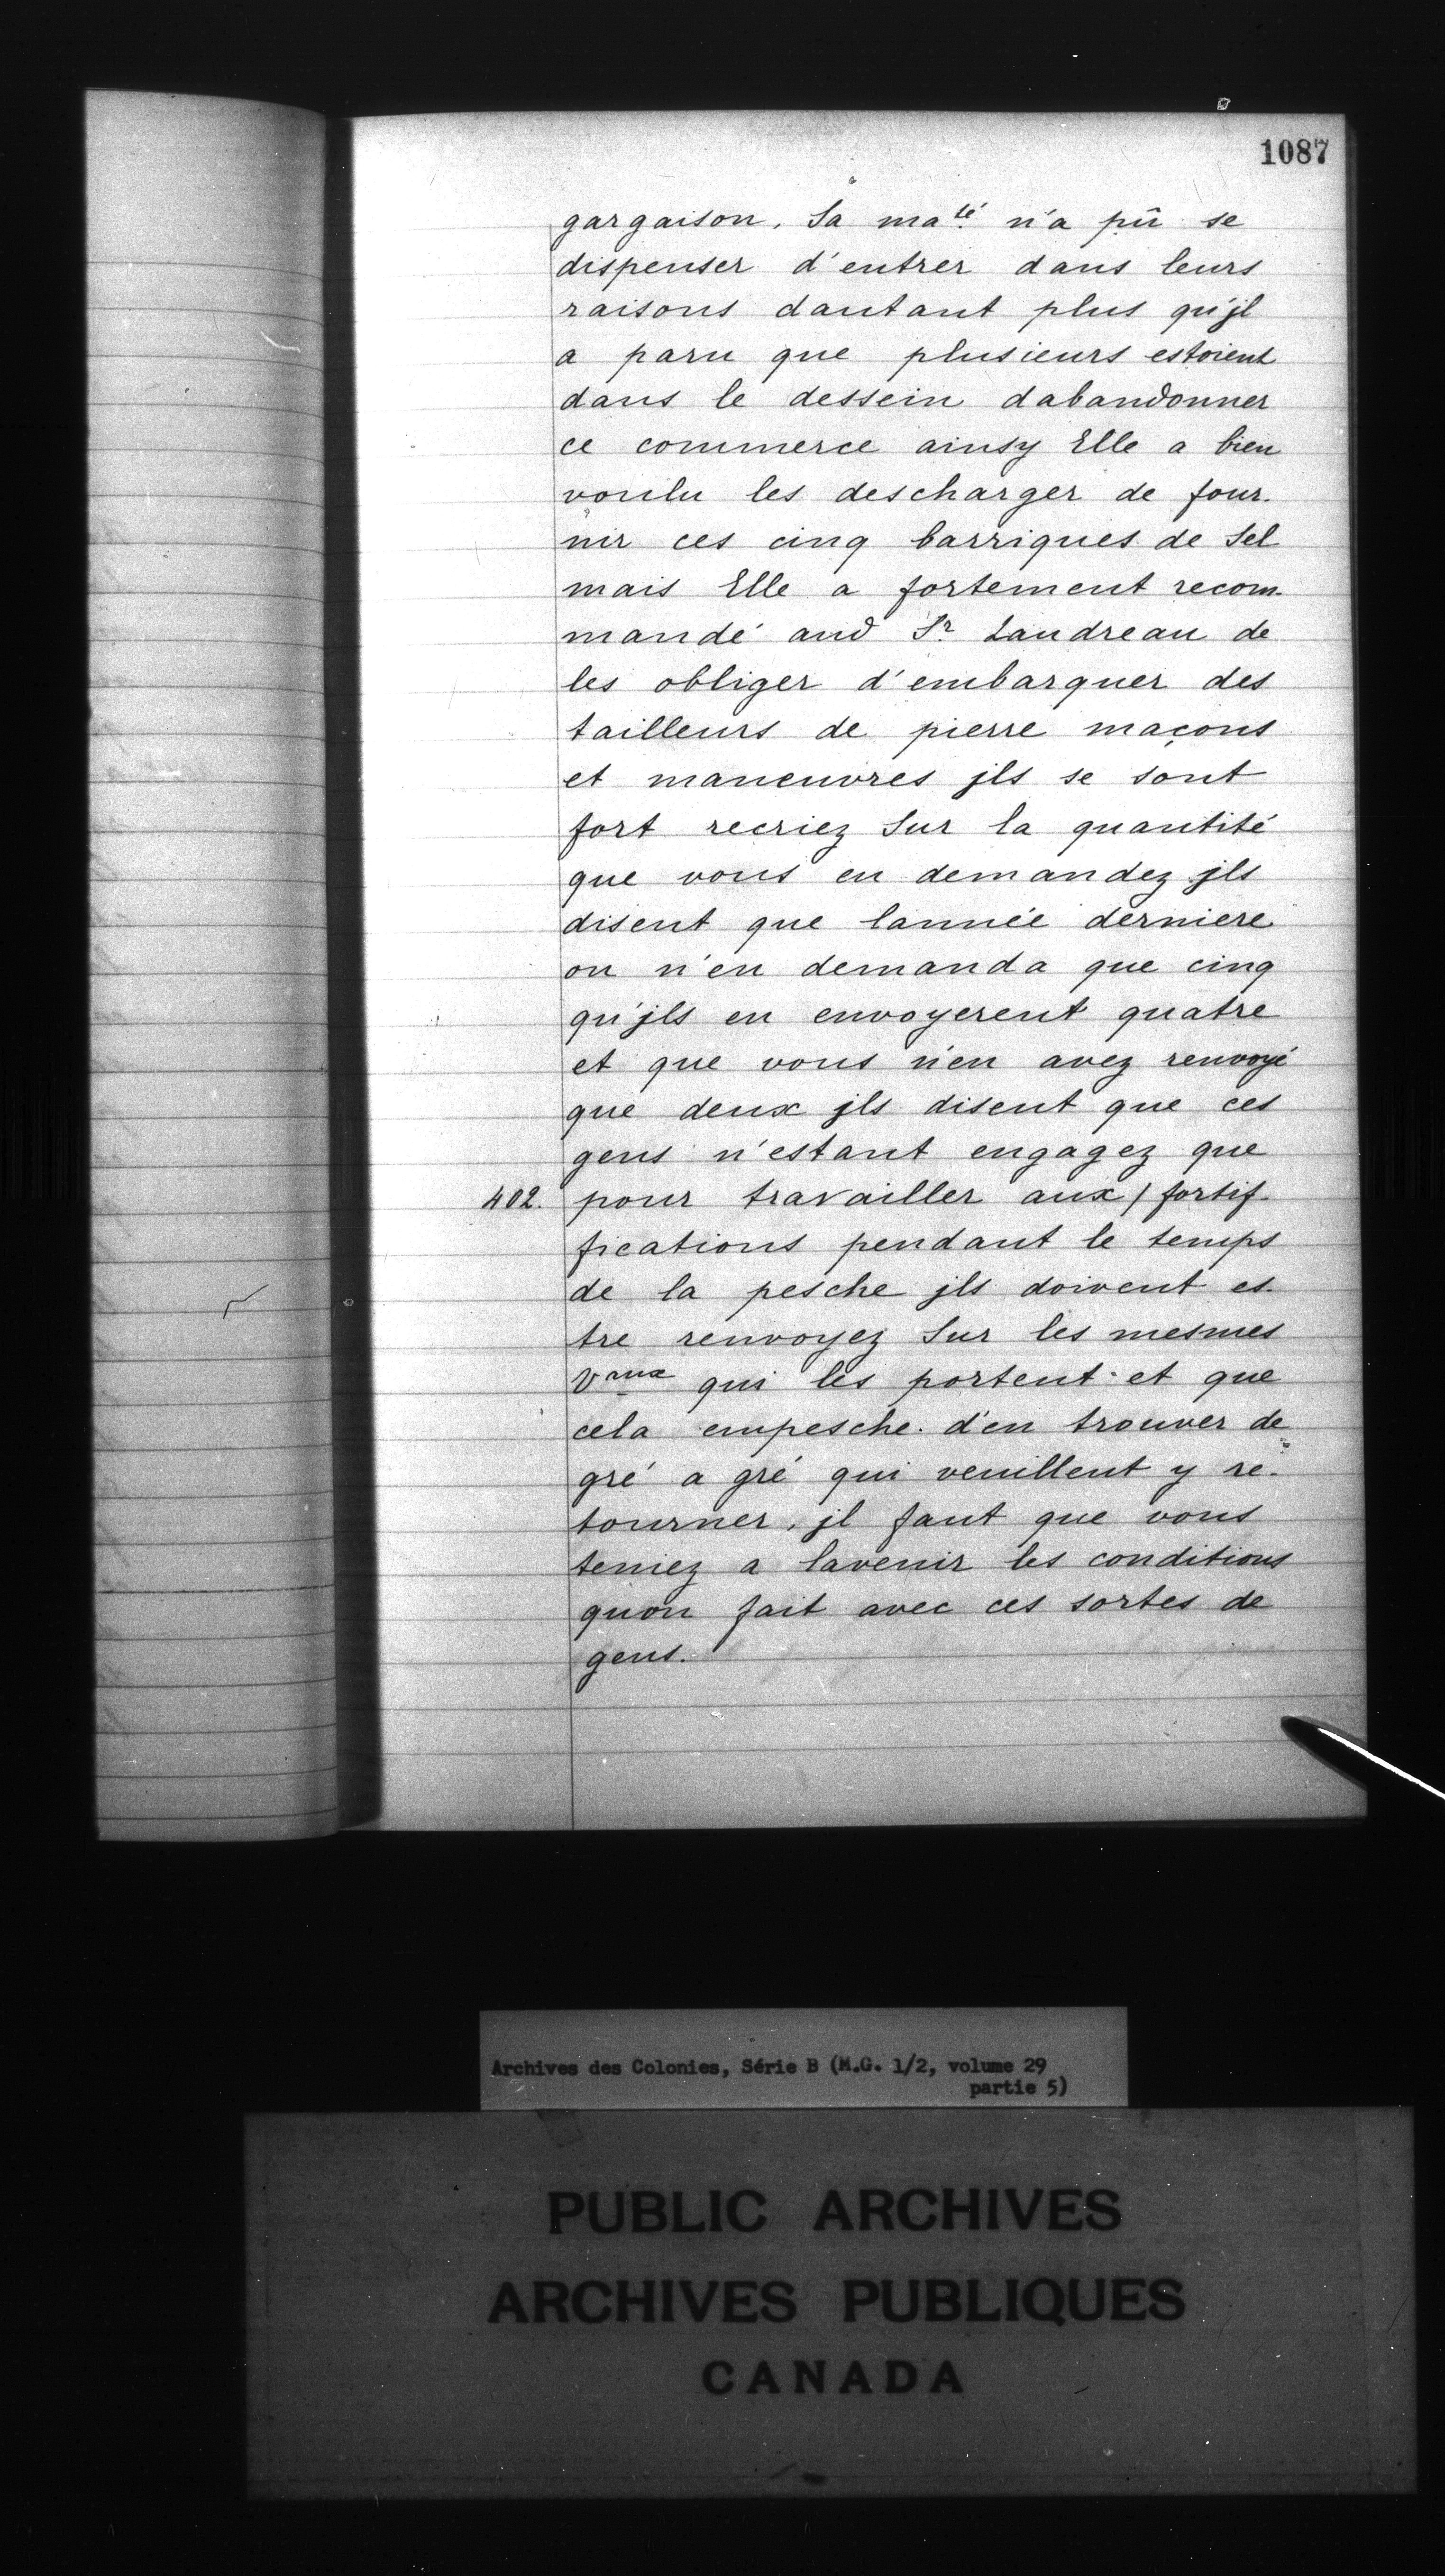 1087
gargaison. Sa ma.té n'a pû se
dispenser d'entrer dans leurs
raisons dautant plus qu'jl
a paru que plusieurs estoient
dans le dessein dabandonner
ce commerce ainsy Elle a bien
voulu les descharger de four-
nir ces cinq barriques de Sel
mais Elle a fortement recom-
mandé aud Sr Landreau de
les obliger d'embarquer des
tailleurs de pierre maçons
et maneuvres jls se sont
fort recriez Sur la quantité
que vous en demandez jls
disent que lannée derniere
on n'en demanda que cinq
qu'jls en envoyerent quatre
et que vous n'en avez renvoyé
que deux jls disent que ces
gens n'estant engagez que
402. pour travailler aux / fortif-
fications pendant le temps
de la pesche jls doivent es-
tre renvoyez Sur les mesmes
Vaux qui les portent et que
cela empesche d'en trouver de
gré a gré qui veuillent y re-
tourner, jl faut que vous
teniez a lavenir les conditions
quon fait avec ces sortes de
gens.
Archives des Colonies, Série B (M.G. 1/2, volume 29
partie 5)
PUBLIC ARCHIVES
ARCHIVES PUBLIQUES
CANADA